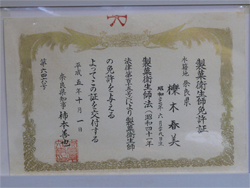 製菓衛生師免許証
本籍地 奈良県
櫟木春美
製菓衛生師法(昭和四十一年
法律第百十五号)により製菓衛生師
の免許を与える
よってこの証を交付する
平成五年十月一日
奈良県知事 柿本善也